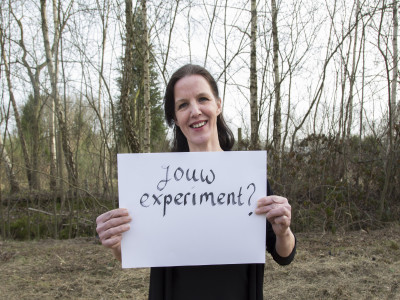 Jouw
experiment?